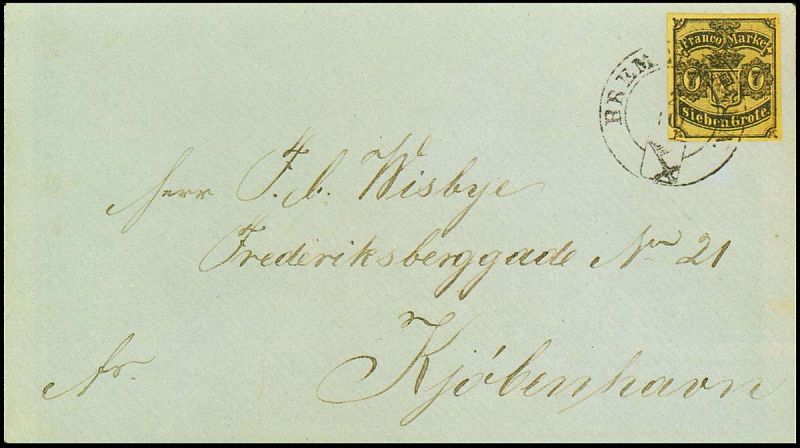 Franco Marke
7 7
Sieben Grote.
BREM
Herr F. C. Wisbye
Frederiksberggade No 21
Fr. Kjöbenhavn